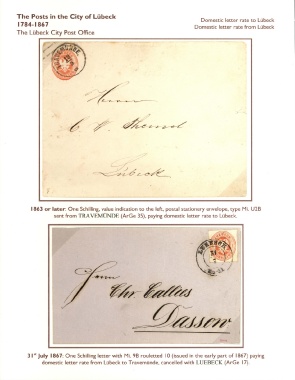 The Posts in the City of Lübeck
1784-1867
The Lübeck City Post Office
Domestic letter rate to Lübeck
Domestic letter rate from Lübeck
Herrn
Lübeck
1863 or later: One Schilling, value indication to the left, postal stationery envelope, type Mi. U2B
sent from TRAVEMÜNDE (ArGe 35), paying domestic letter rate to Lübeck.
Herrn
Chr. Callies
Dassow
31st July 1867: One Schilling letter with Mi. 9B rouletted 10 (issued in the early part of 1867) paying
domestic letter rate from Lübeck to Travemünde, cancelled with LUEBECK (ArGe 17).